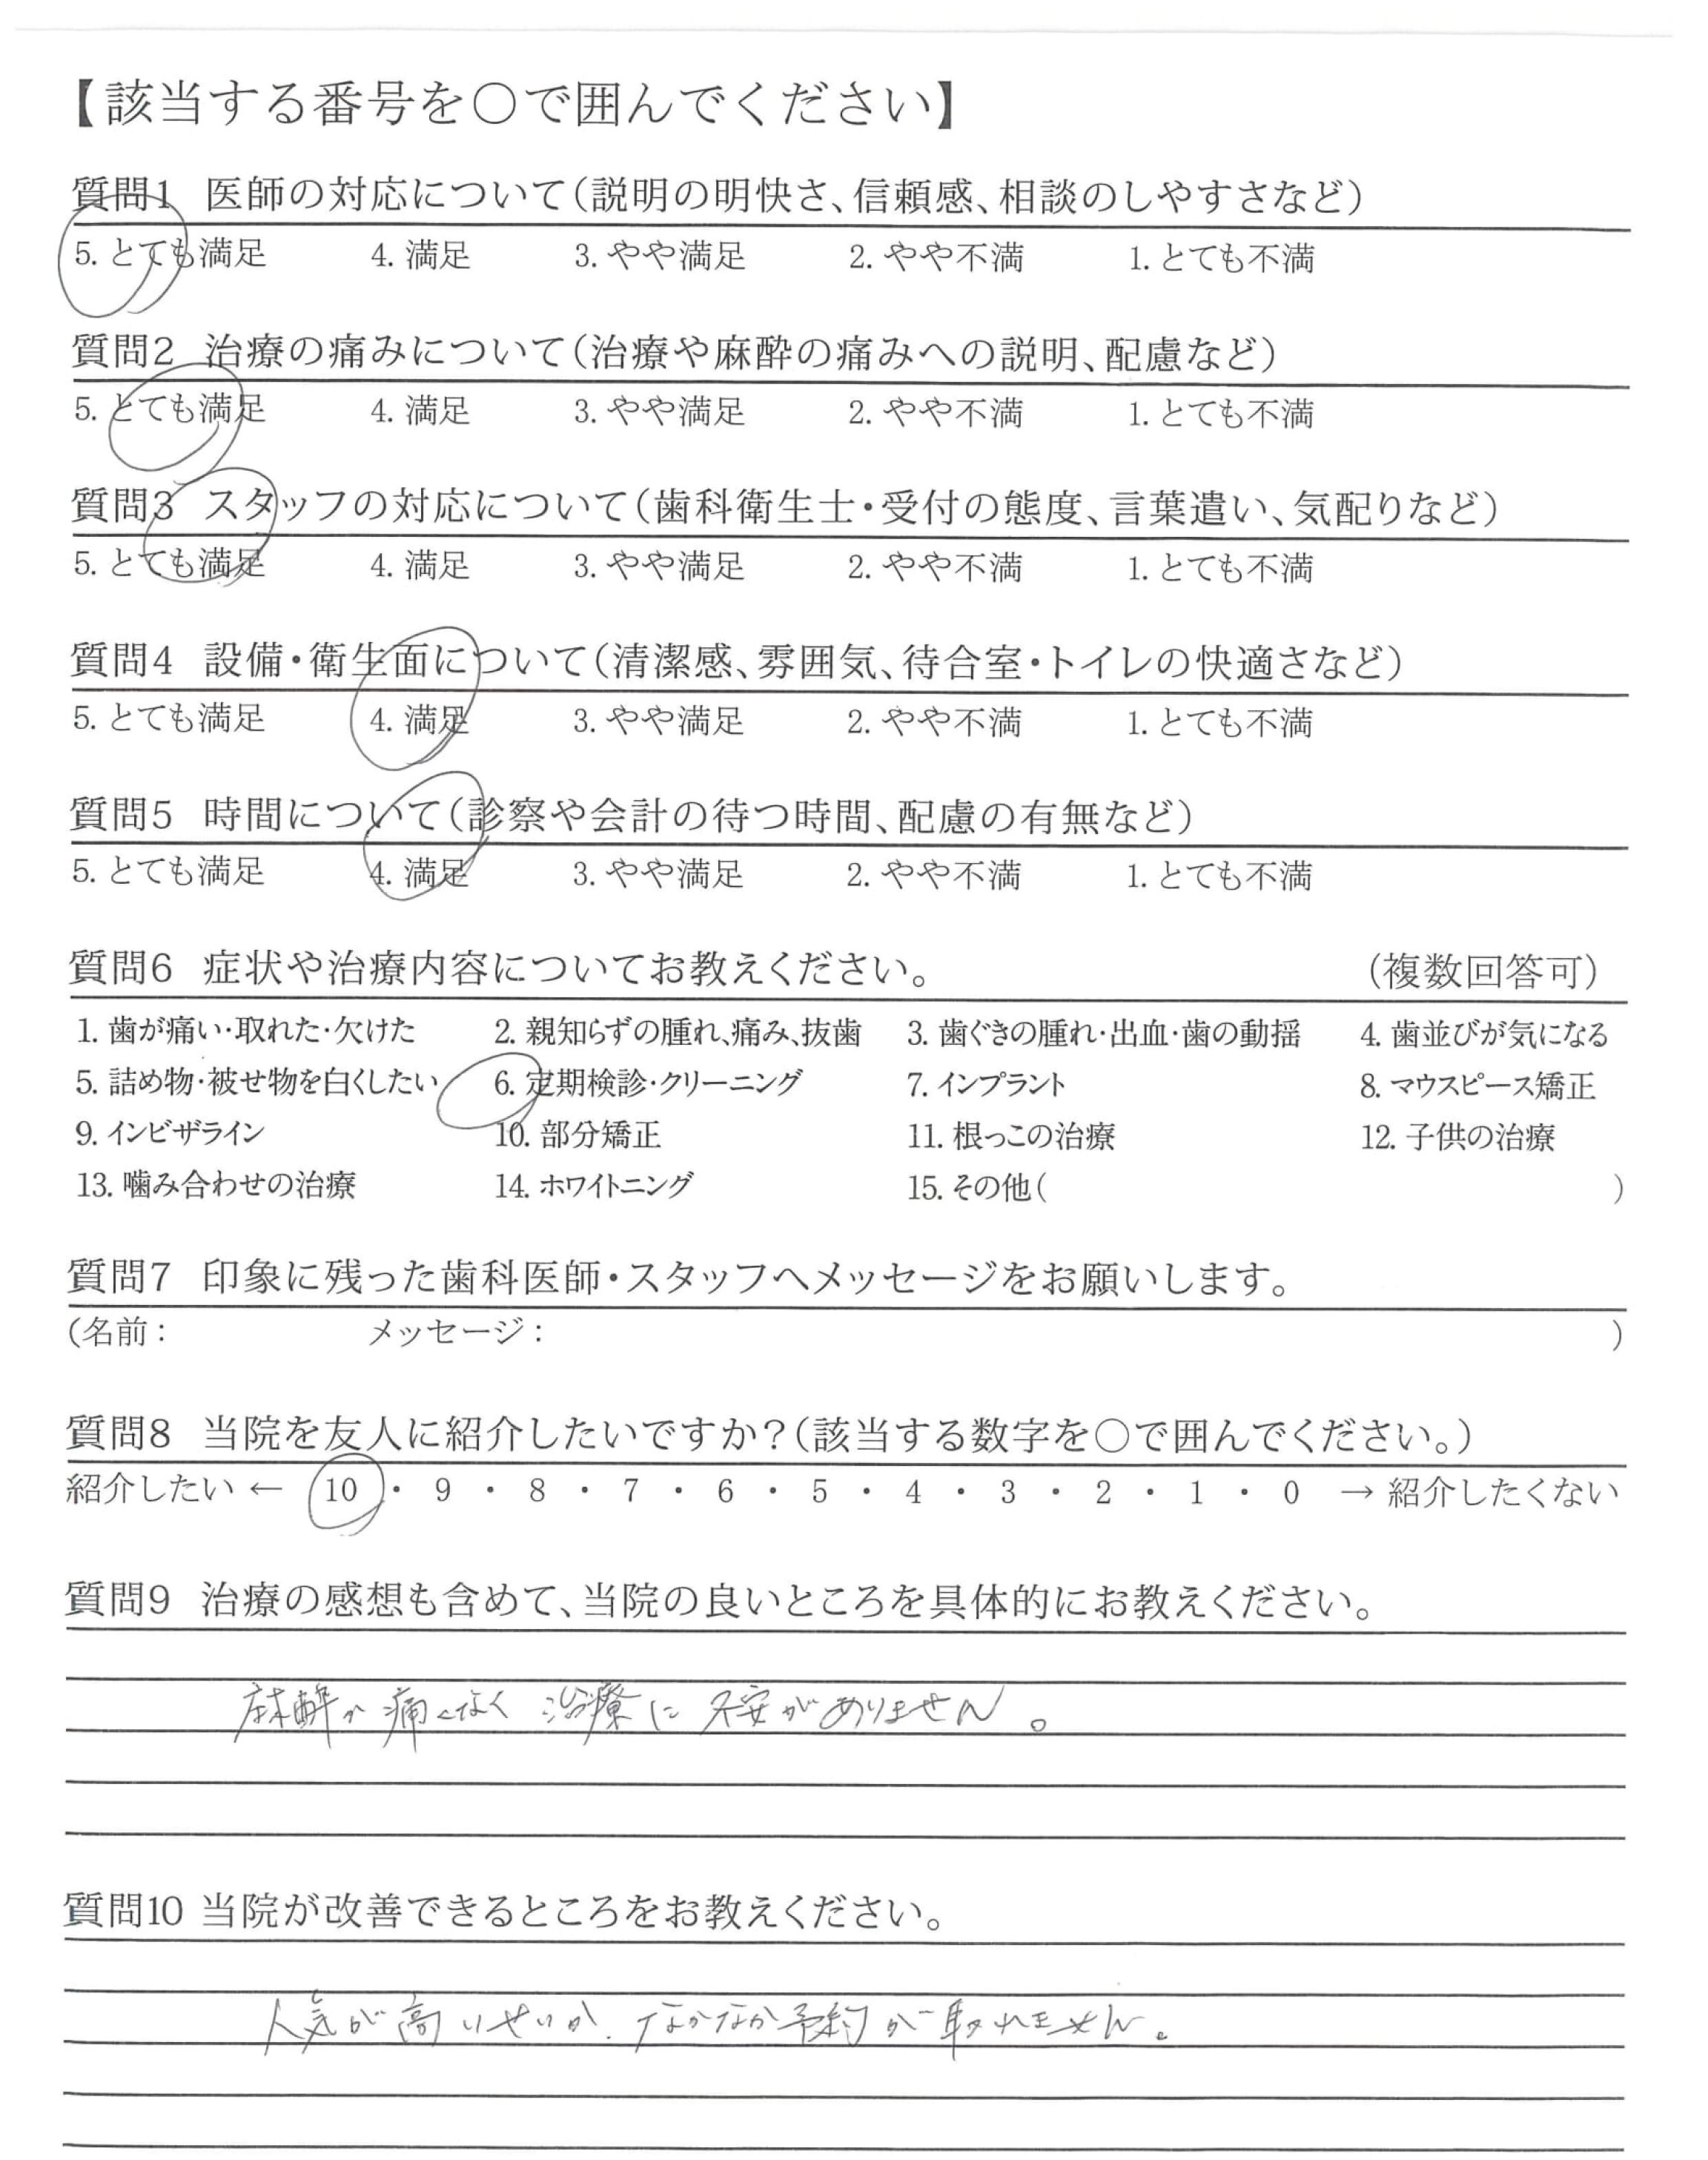 【該当する番号を〇で囲んでください】
質問1 医師の対応について(説明の明快さ、信頼感、相談のしやすさなど)
5. とても満足 4. 満足 3. やや満足 2. やや不満 1. とても不満
質問2 治療の痛みについて(治療や麻酔の痛みへの説明、配慮など)
5. とても満足 4. 満足 3. やや満足 2. やや不満 1. とても不満
質問3 スタッフの対応について(歯科衛生士・受付の態度、言葉遣い、気配りなど)
5. とても満足 4. 満足 3. やや満足 2. やや不満 1. とても不満
質問4 設備・衛生面について(清潔感、雰囲気、待合室・トイレの快適さなど)
5. とても満足 4. 満足 3. やや満足 2. やや不満 1. とても不満
質問5 時間について(診察や会計の待つ時間、配慮の有無など)
5. とても満足 4. 満足 3. やや満足 2. やや不満 1. とても不満
質問6 症状や治療内容についてお教えください。 (複数回答可)
1. 歯が痛い・取れた・欠けた 2. 親知らずの腫れ、痛み、抜歯 3. 歯ぐきの腫れ・出血・歯の動揺 4. 歯並びが気になる
5. 詰め物・被せ物を白くしたい 6. 定期検診・クリーニング 7. インプラント 8. マウスピース矯正
9. インビザライン 10. 部分矯正 11. 根っこの治療 12. 子供の治療
13. 噛み合わせの治療 14. ホワイトニング 15. その他( )
質問7 印象に残った歯科医師・スタッフへメッセージをお願いします。
(名前: メッセージ: )
質問8 当院を友人に紹介したいですか?(該当する数字を〇で囲んでください。)
紹介したい ← 10 ・ 9 ・ 8 ・ 7 ・ 6 ・ 5 ・ 4 ・ 3 ・ 2 ・ 1 ・ 0 → 紹介したくない
質問9 治療の感想も含めて、当院の良いところを具体的にお教えください。
麻酔が痛くなく 治療に不安がありません。
質問10 当院が改善できるところをお教えください。
人気が高いせいか、なかなか予約が取れません。